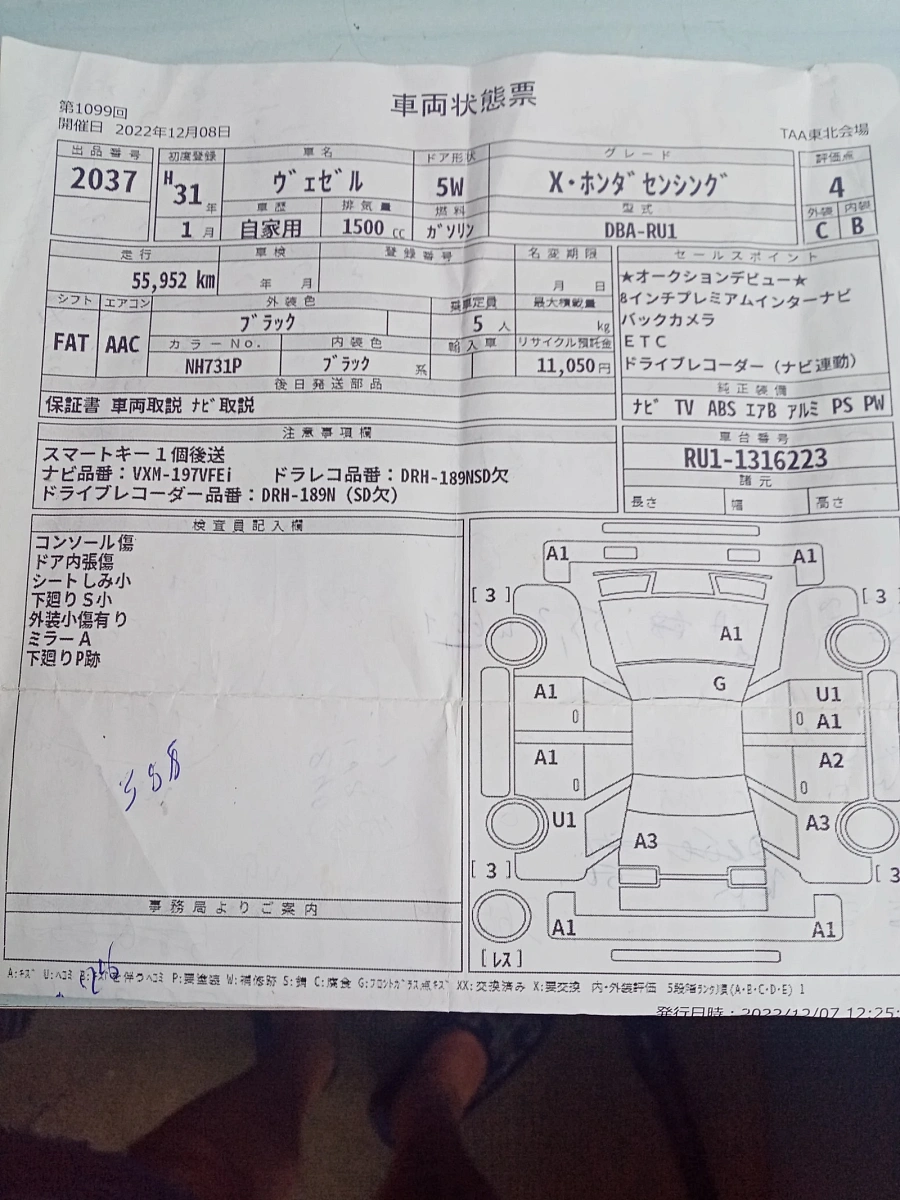 車両状態票
第1099回
開催日 2022年12月08日
TAA東北会場
出品番号 初度登録 車名 ドア形状 グレード 評価点
2037 H31年 ヴェゼル 5W X・ホンダセンシング 4
車歴 排気量 燃料 型式 外装 内装
1月 自家用 1500cc ガソリン DBA-RU1 C B
走行 車検 登録番号 名変期限 セールスポイント
55,952 km 年 月 月 日
★オークションデビュー★
8インチプレミアムインターナビ
バックカメラ
ETC
ドライブレコーダー（ナビ連動）
シフト エアコン 外装色 乗車定員 最大積載量
FAT AAC ブラック 5人 kg
カラーNo. 内装色 輸入車 リサイクル預託金
NH731P ブラック 系 11,050円
後日発送部品 純正装備
保証書 車両取説 ナビ取説
ナビ TV ABS エアB アルミ PS PW
注意事項欄 車台番号
スマートキー1個後送
ナビ品番：VXM-197VFEi ドラレコ品番：DRH-189NSD欠
ドライブレコーダー品番：DRH-189N（SD欠）
RU1-1316223
諸元
長さ 幅 高さ
検査員記入欄
コンソール傷
ドア内張傷
シートしみ小
下廻りS小
外装小傷有り
ミラーA
下廻りP跡
A1 A1
[3] [3]
A1
G
A1 U1
A1
A1 A2
U1 A3 A3
[3] [3
A1 A1
[レス]
588
事務局よりご案内
A:キズ U:ヘコミ B:キズを伴うヘコミ P:要塗装 W:補修跡 S:錆 C:腐食 G:フロントガラス点キズ XX:交換済み X:要交換 内・外装評価 5段階ランク/員(A・B・C・D・E) 1
発行日時：2022/12/07 12:25: